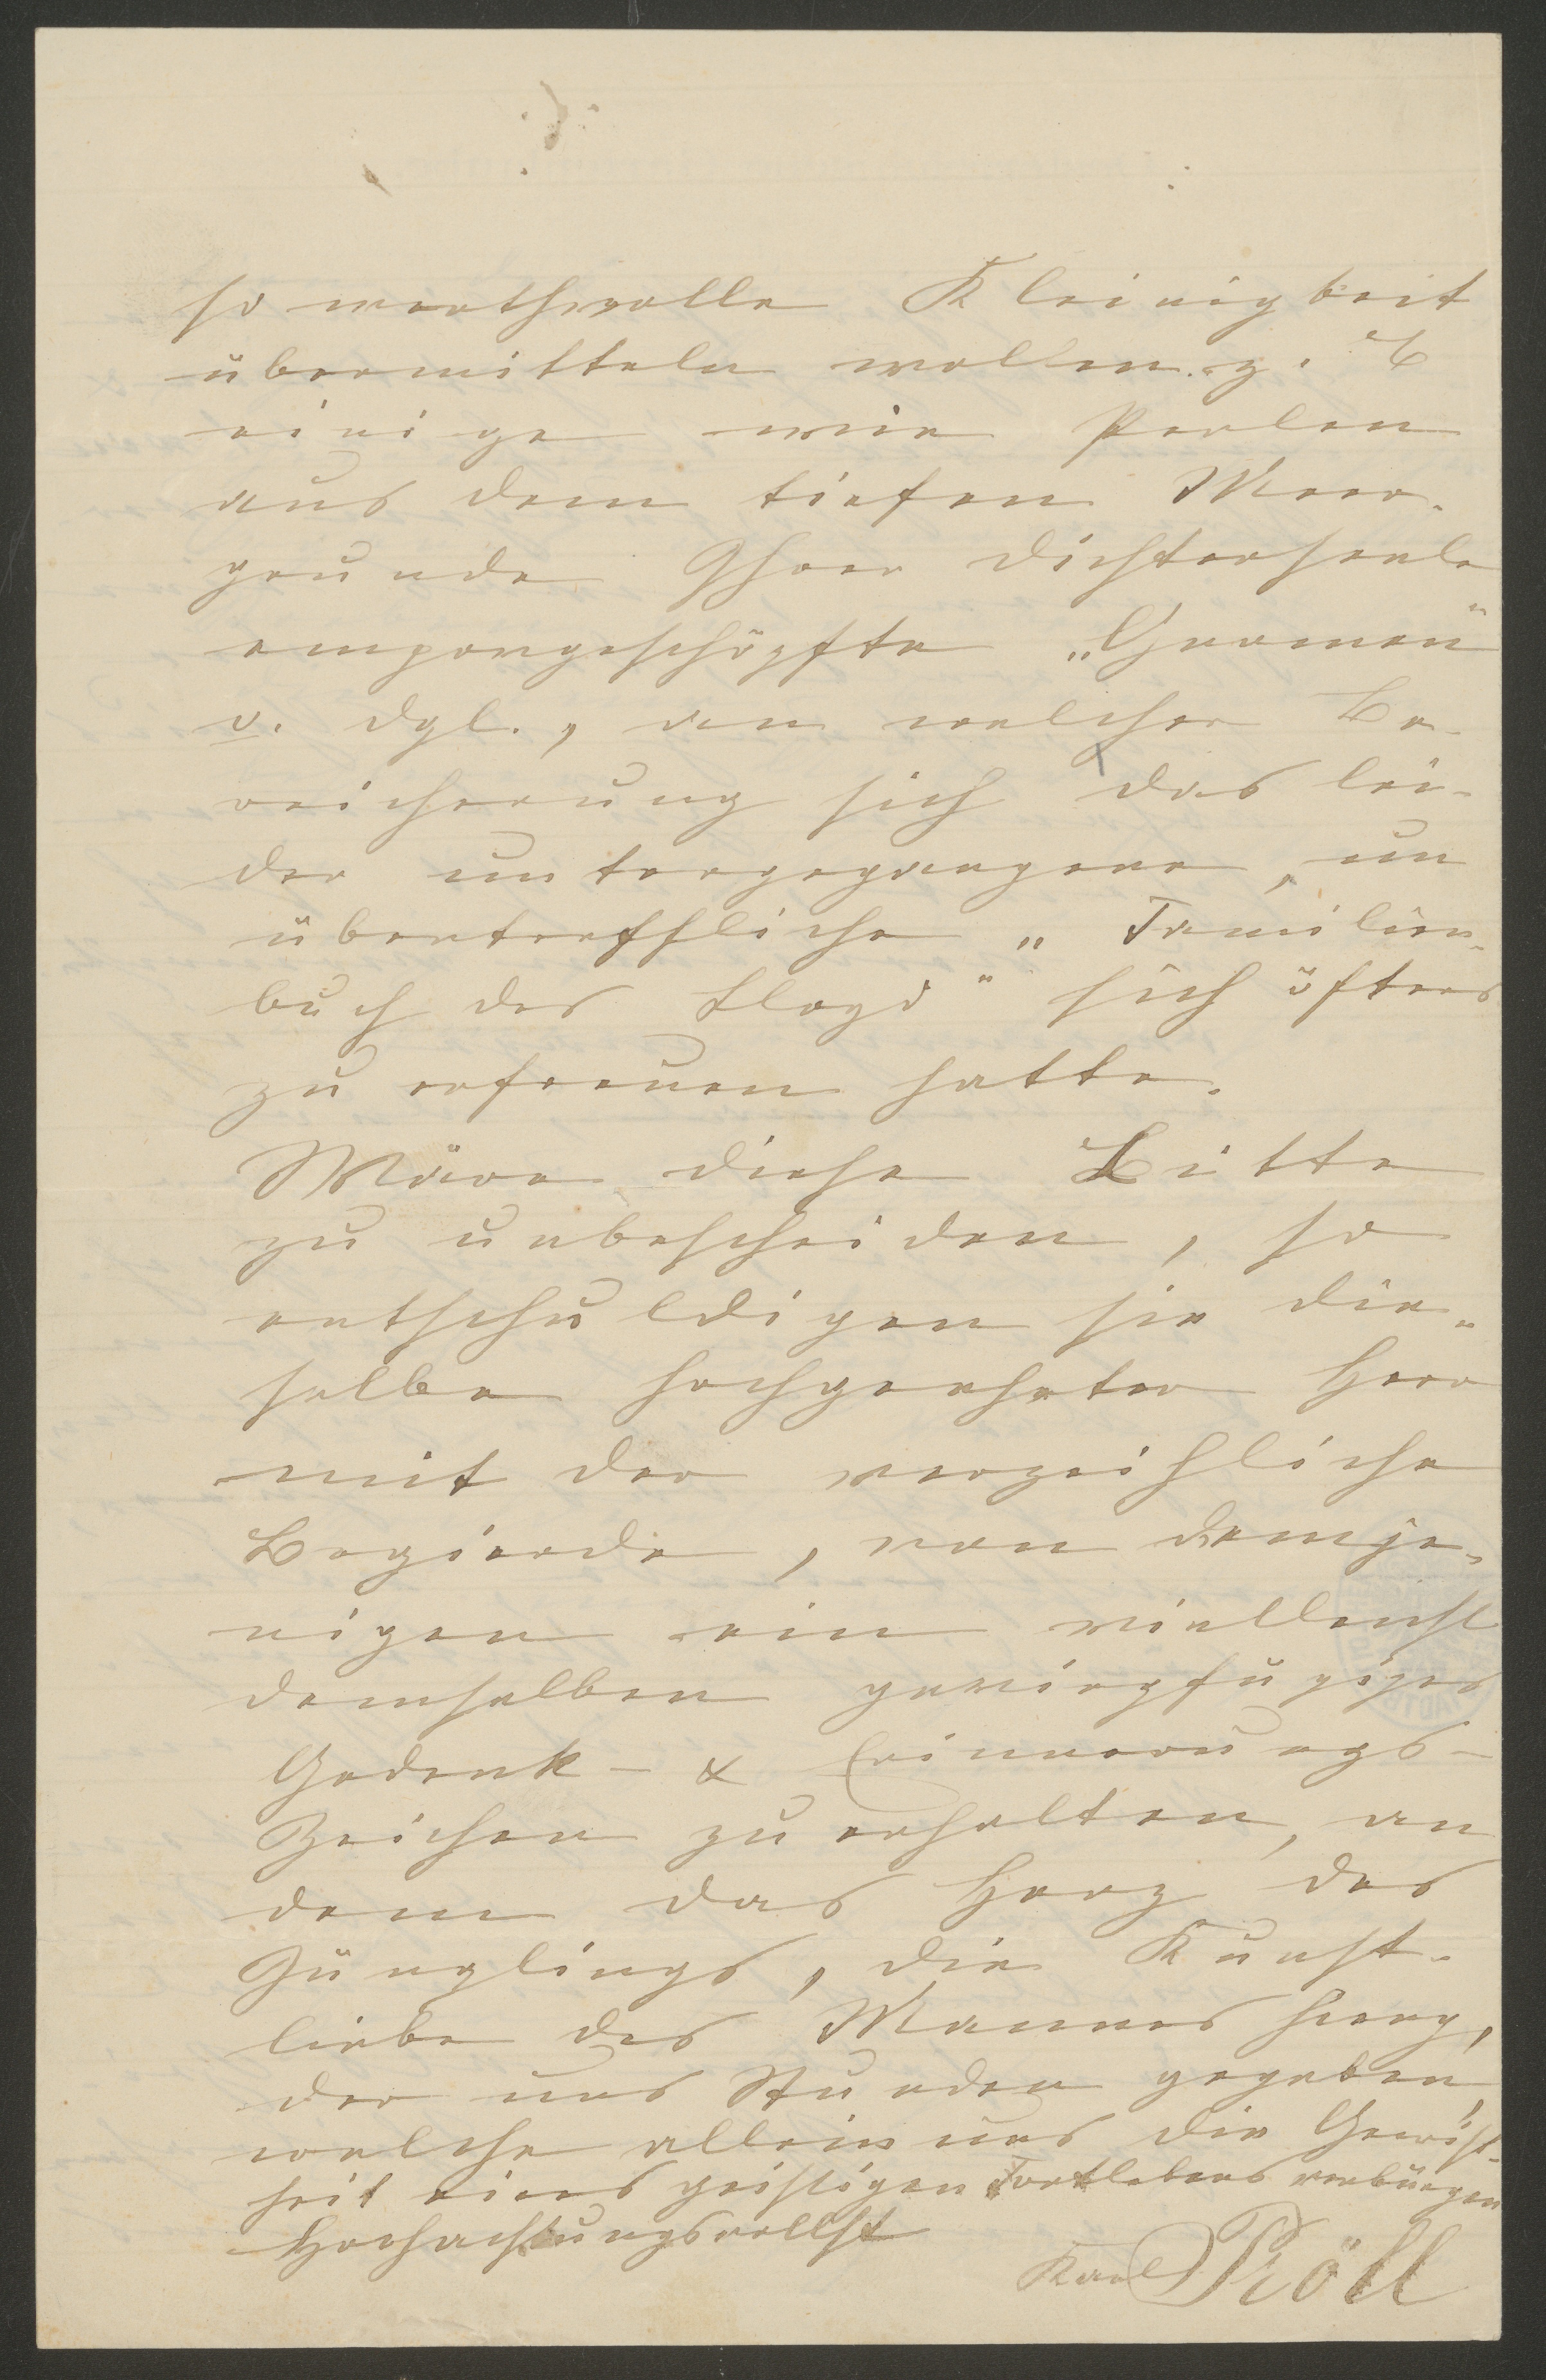 so werthvolle Kleinigkeit
übermitteln wollen z. B
einige wie Perlen
aus dem tiefen Meer-
grunde Ihrer Dichterseele
emporgeschöpfte „Gnomen“
u. dgl., an welcher Be-
reicherung sich das lei-
der untergegangene, un
übertreffliche „Familien-
buch des Lloyd“ sich öfters
zu erfreuen hatte.
Wäre diese Bitte
zu unbescheiden, so
entschuldigen sie die-
selbe hochgeehrter Herr
mit der verzeihliche
Begierde, von demje-
nigen ein vielleicht
demselben geringfügiges
Gedenk- & Erinnerungs-
Zeichen zu erhalten, an
dem das Herz des
Jünglings, die Kunst-
liebe des Mannes hieng,
der uns Stunden gegeben,
welche allein uns die Gewiß-
heit eines geistigen Fortlebens verbürgen
Hochachtungsvollst
Karl Pröll